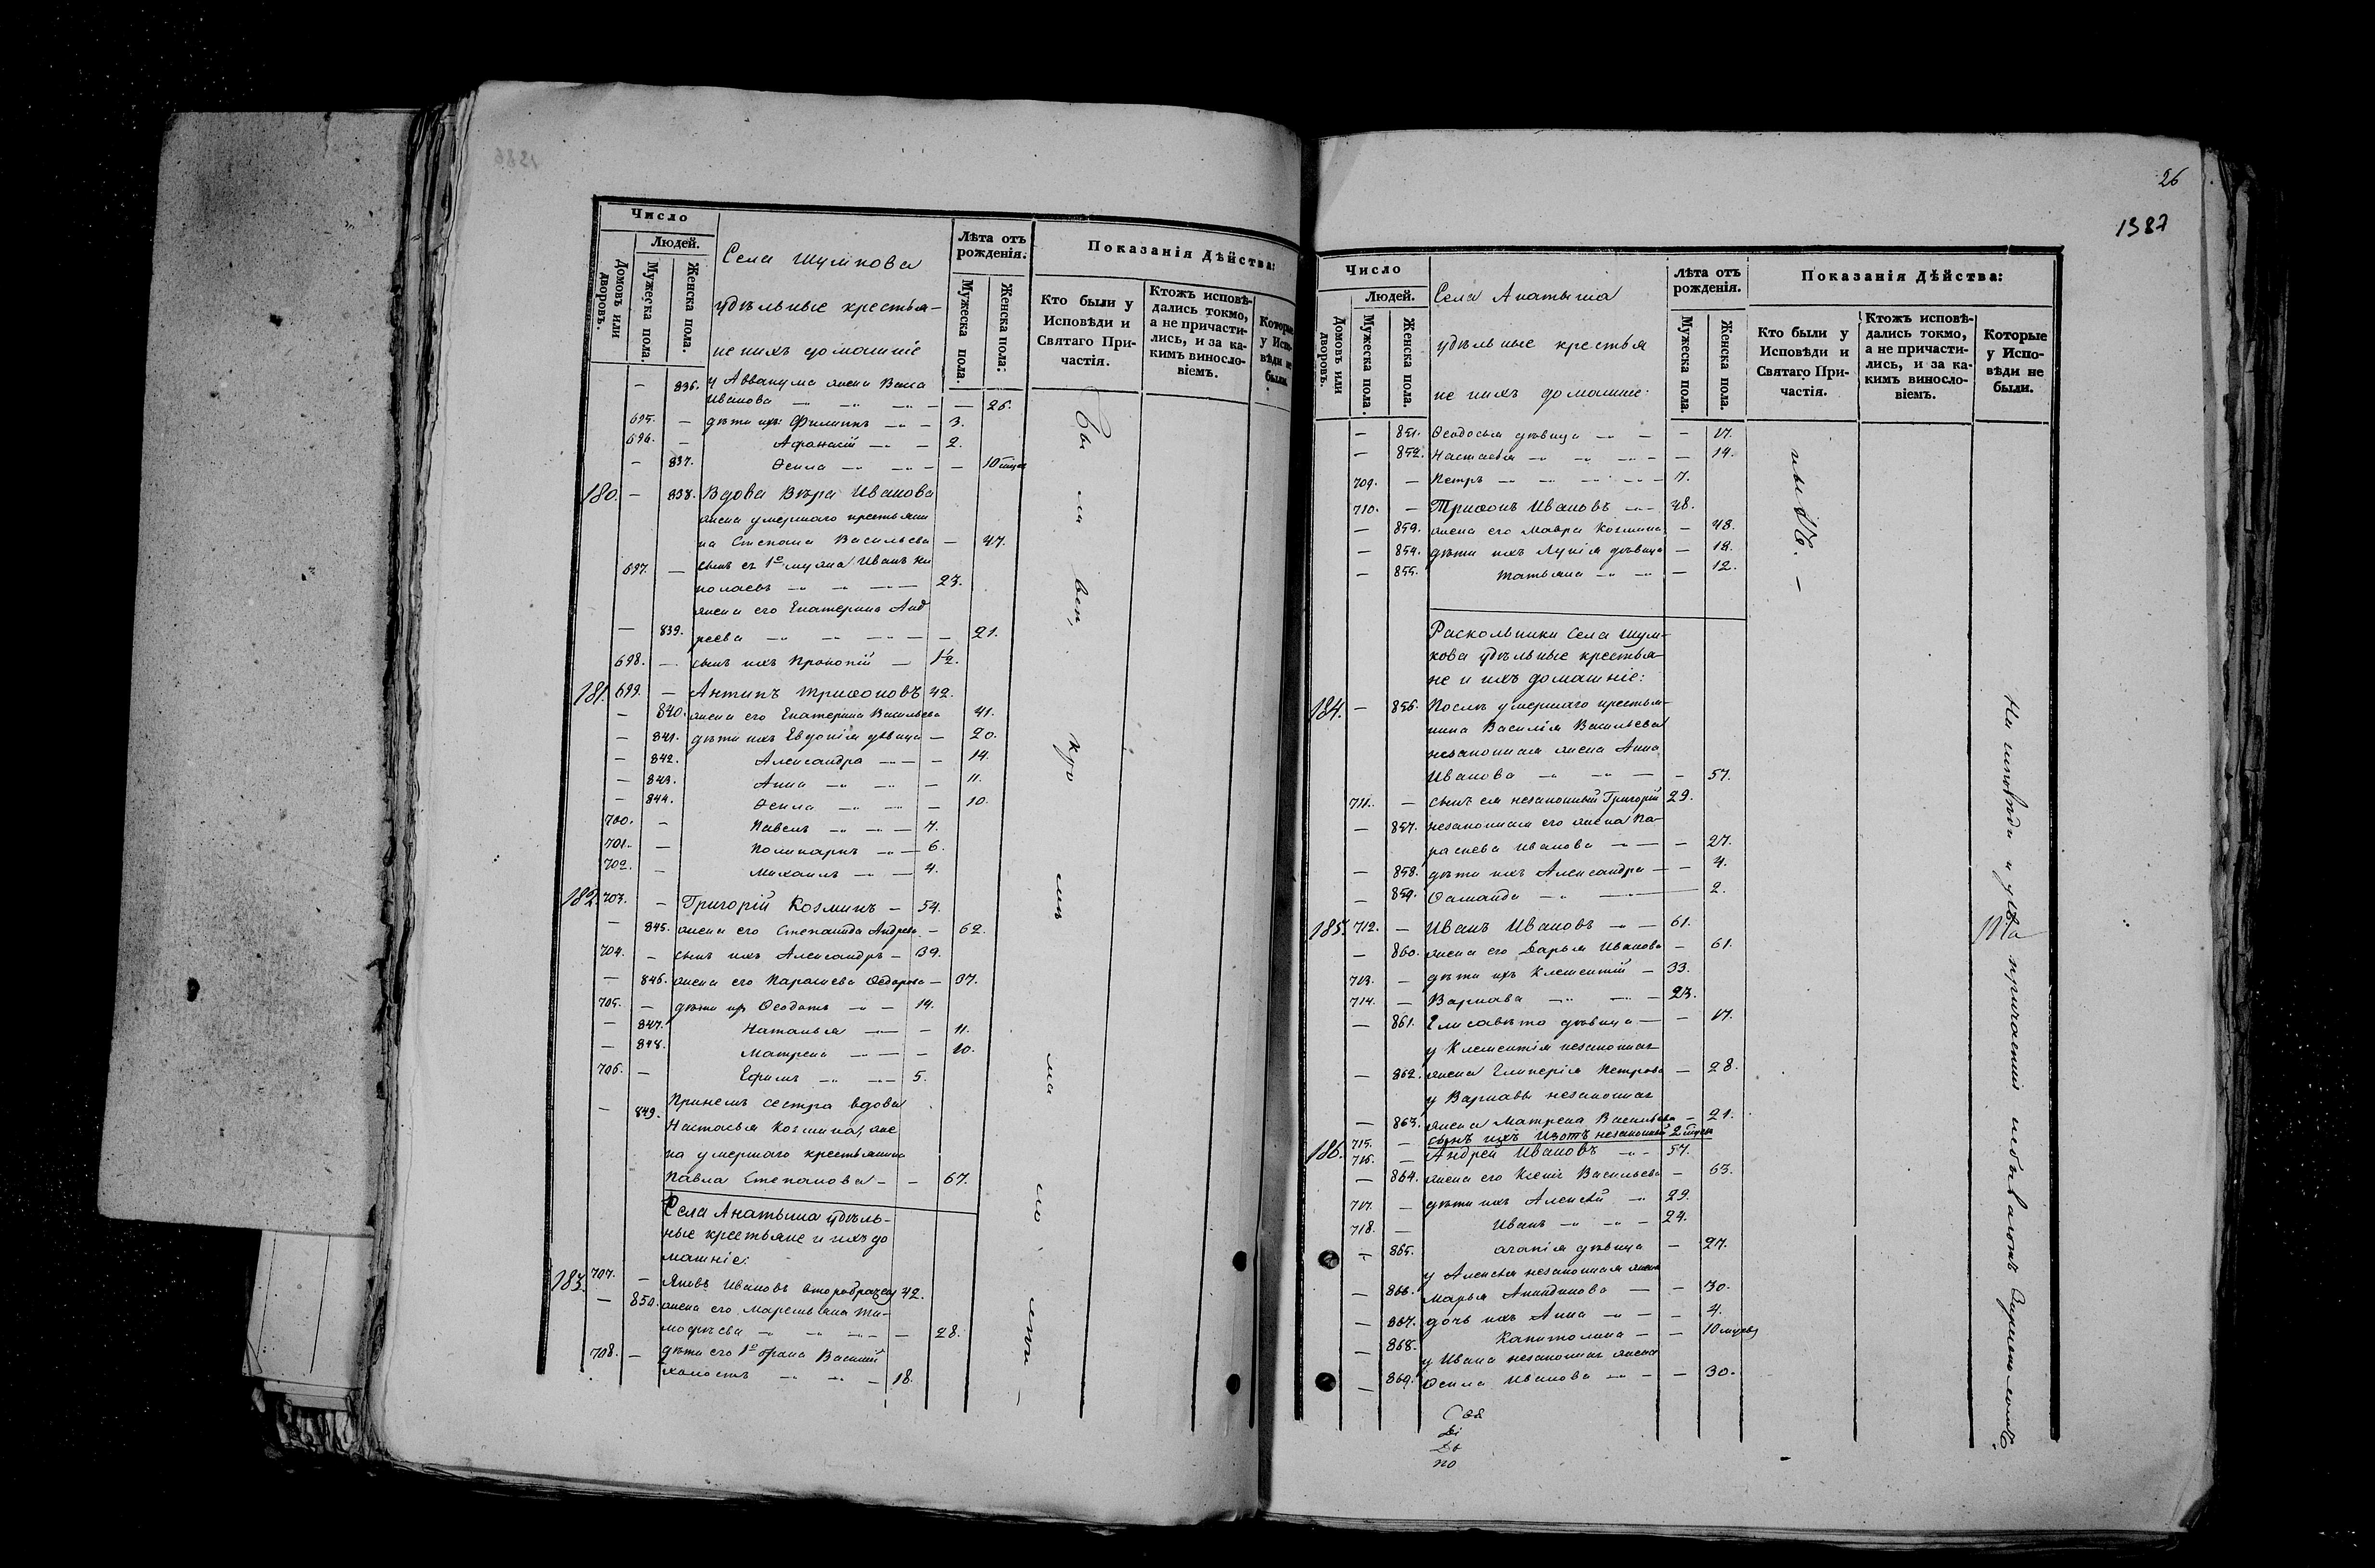 Число
Людей.
Домовъ или дворовъ.
Мужеска пола.
Женска пола.
Села Шумкова
удѣльные крестья-
не ихъ домашніе
Лѣта отъ рожденія.
Мужеска пола.
Женска пола:
Показанія Дѣйства:
Кто были у Исповѣди и Святаго Причастія.
Ктожъ исповѣ-
дались токмо,
а не причасти-
лись, и за ка-
кимъ виносло-
віемъ.
Которые
у Испо-
вѣди не
были.
— 836. у Аввакума жена Васса
Иванова — — 26.
695. — дѣти ихъ: Филиппъ — 3.
696. — Афанасій — 2.
— 837. Фекла — — 10 мцев
180. — 838. Вдова Вѣра Иванова
жена умершаго крестьяни
на Степана Васильева — 47.
697. — сынъ съ 1го мужа Иванъ Ни
колаевъ — 23.
жена его Екатерина Анд
— 839. реева — — 21.
698. — сынъ ихъ Прокопій — 1½.
181. 699. — Антипъ Трифоновъ 42.
— 840. жена его Екатерина Васильева 41.
— 841. дѣти ихъ Евдокія дѣвица — 20.
— 842. Александра — — 14.
— 843. Анна — — 11.
— 844. Фекла — — 10.
700. — Павелъ — 7.
701. — Поликарпъ — 6.
702. — Михаилъ — 4.
182. 703. — Григорій Козминъ — 54.
— 845. жена его Степанида Андрева — 62.
704. — сынъ ихъ Александръ — 39.
— 846. жена его Параскева Федорова — 37.
705. — дѣти их Феодотъ — 14.
— 847. Наталья — — 11.
— 848. Матрена — — 10.
706. — Ефимъ — 5.
Принемъ сестра вдова
— 849. Настасья Козмина, же
на умершаго крестьянина
Павла Степанова — — 67.
Села Анатыша удѣль-
ные крестьяне и ихъ до
машніе:
183. 707. — Яковъ Ивановъ второбрачен 42.
— 850. жена его Маремьяна Ти-
мофѣева — — 28.
708. — дѣти его 1го брака Василій
холостъ — 18.
26
1387
Число
Людей.
Домовъ или дворовъ.
Мужеска пола.
Женска пола.
Села Анатыша
удѣльные крестья
не ихъ домашніе.
Лѣта отъ рожденія.
Мужеска пола.
Женска пола.
Показанія Дѣйства:
Кто были у
Исповѣди и
Святаго При-
частія.
Ктожъ исповѣ-
дались токмо,
а не причасти-
лись, и за ка-
кимъ виносло-
віемъ.
Которые
у Испо-
вѣди не
были.
— 851. Феодосья дѣвица — — 17.
— 852. Настасья — — 14.
709. — Петръ — 7.
710. — Трифонъ Ивановъ — 48.
— 853. жена его Мавра Козмина — 48.
— 854. дѣти ихъ Лукія дѣвица — 18.
— 855. Татьяна — — 12.
Раскольники Села Шум-
кова удѣльные крестья-
не и ихъ домашніе:
184. — 856. Послѣ умершаго крестья-
нина Василія Васильева
незаконная жена Анна
Иванова — — 57.
711. — сынъ ея незаконный Григорій 29.
— 857. незаконная его жена Па-
раскева Иванова — — 27.
— 858. дѣти ихъ Александра — 4.
— 859. — 2.
185. 712. — Иванъ Ивановъ — 61.
— 860. жена его Дарья Иванова — 61.
713. — дѣти ихъ Климентій — 33.
714. — Варнава — 23.
— 861. Елисавета дѣвица — — 17.
у Климентія незаконная
— 862. жена Гликерія Петрова — 28.
у Варнавы незаконная
— 863. жена Матрена Васильева — 21.
715. — сынъ ихъ Изотъ незаконный 2 мцев
186. 716. — Андрей Ивановъ — 57.
— 864. жена его Ксенія Васильева — 63.
717. — дѣти ихъ Алексѣй — 29.
718. — Иванъ — 24.
— 865. Агапія дѣвица — 27.
у Алексѣя незаконная жена
— 866. Марья Аникдинова — — 30.
— 867. дочь ихъ Анна — — 4.
— 868. Капитолина — — 10 мцев
у Ивана незаконная жена
— 869. Фекла Иванова — — 30.
На исповѣди и у Св. причастія небываютъ